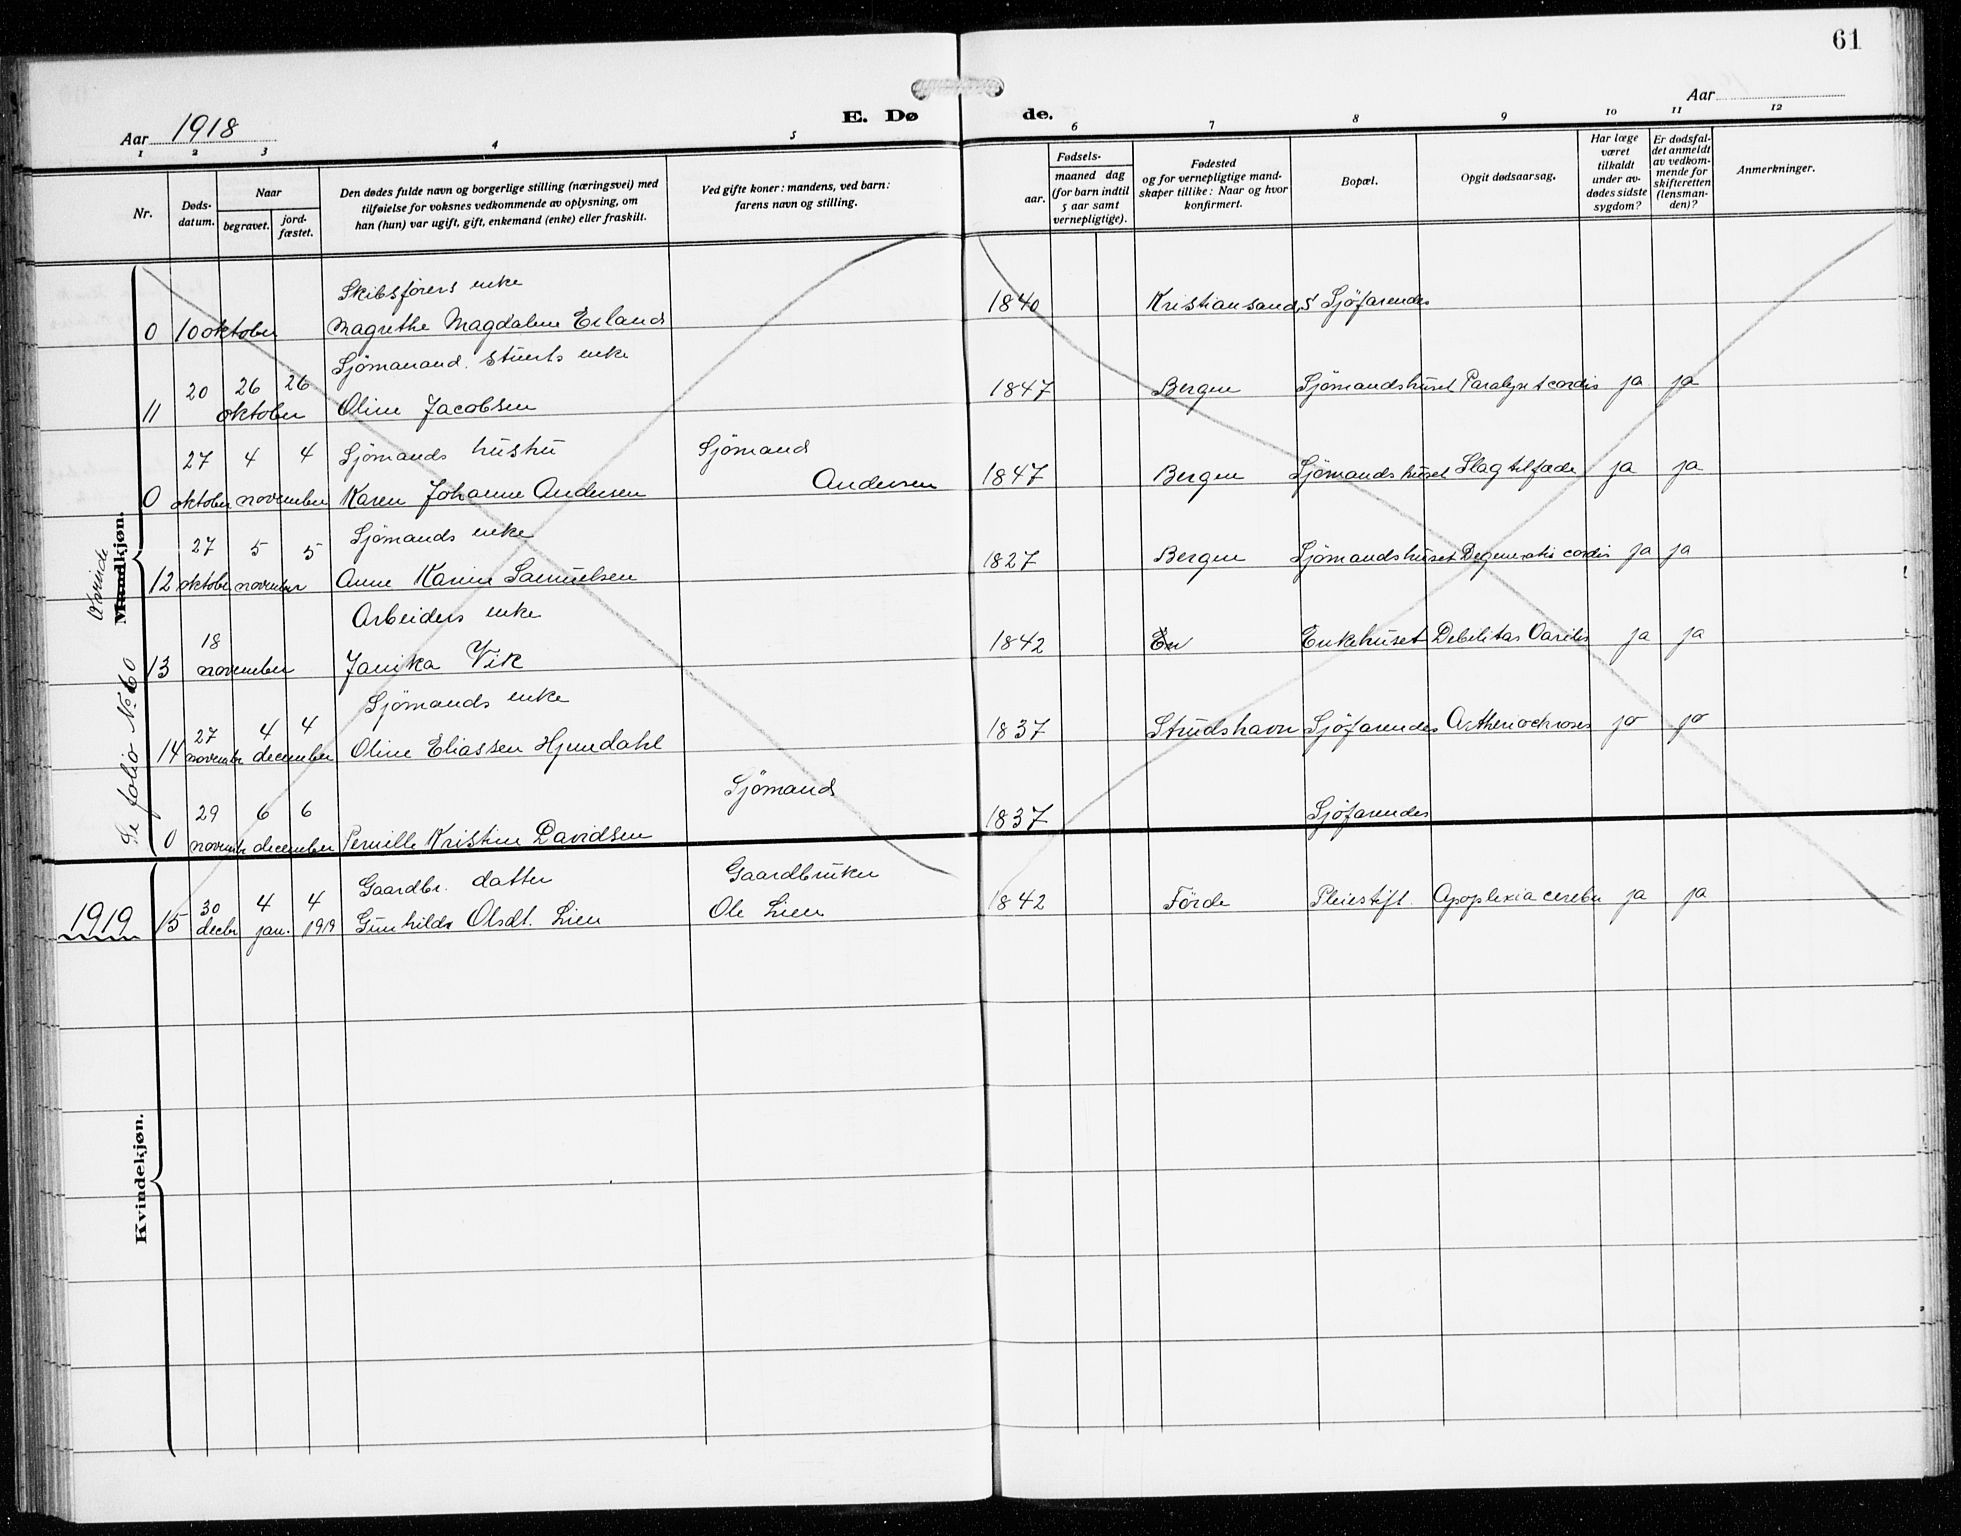 61
E. Døde.
Aar 1918
Aar
1 2 3 4 5 6 7 8 9 10 11 12
Nr.
Døds-
datum.
Naar
begravet.
jord-
fæstet.
Den dødes fulde navn og borgerlige stilling (næringsvei) med
tilføielse for voksnes vedkommende av oplysning, om
han (hun) var ugift, gift, enkemand (enke) eller fraskilt.
Ved gifte koner: mandens, ved barn:
farens navn og stilling.
Fødsels-
aar.
maaned dag
(for barn indtil
5 aar samt
vernepligtige).
Fødested
og for vernepligtige mand-
skaper tillike: Naar og hvor
konfirmert.
Bopæl.
Opgit dødsaarsag.
Har læge
været
tilkaldt
under av-
dødes sidste
sygdom?
Er dødsfal-
det anmeldt
av vedkom-
mende for
skifteretten
(lensman-
den)?
Anmerkninger.
Kvinde
Mandkjøn.
Se folio No 60
Skibsførers enke
0 10 oktober Magrethe Magdalene Erland 1840 Kristiansand S Sjöfarendes
Sjömanand. Stuerts enke
20 26 26
11 oktober Oline Jacobsen 1847 Bergen Sjömandshuset Paralyse cordis ja ja
27 4 4 Sjömands hustru Sjömand
0 oktober november Karen Johanne Andersen Andersen 1847 Bergen Sjömandshuset Slagtilfæde ja ja
27 5 5 Sjömands enke
12 oktober november Anne Karine Samuelsen 1827 Bergen Sjömandshuset Degeneratio cordis ja ja
18 Arbeiders enke
13 november Janika Vik 1842 Enkehuset Debilitas ja ja
27 4 4 Sjömands enke
14 novembr december Oline Eliassen Hjemdahl 1837 Strudshavn Sjöfarendes ja ja
29 6 6 Sjömand
0 novembr december Pernille Kristine Davidsen 1837 Sjöfarendes
1919
30 4 4 Gaardbr. datter Gaardbruker
15 decbr jan. 1919 Gunhilda Olsdt. Lien Ole Lien 1842 Förde Pleiestift. Apoplexia cerebri ja ja
Kvindekjøn.